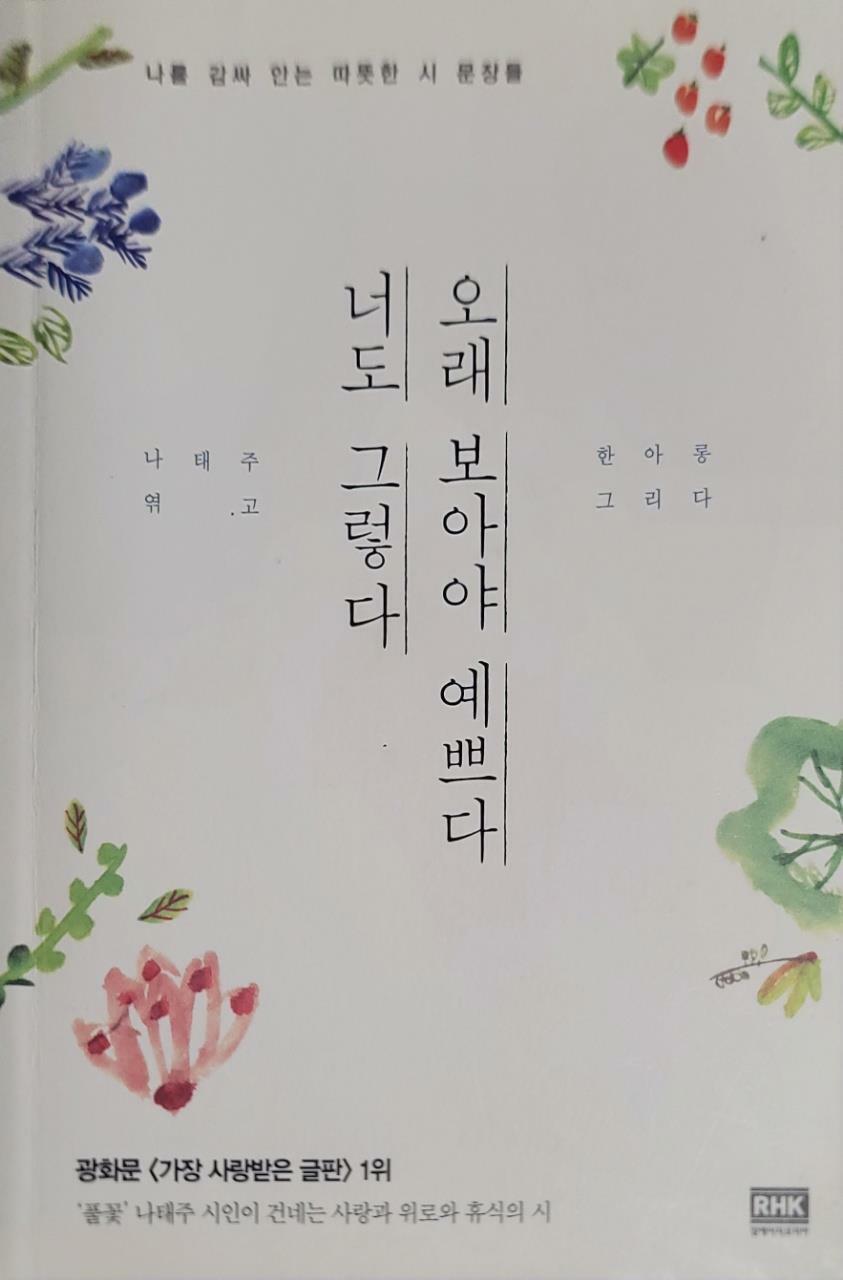 나를 감싸 안는 따뜻한 시 문장들
오래 보아야 예쁘다
너도 그렇다
나태주
엮고
한아롱
그리다
광화문 〈가장 사랑받은 글판〉 1위
‘풀꽃’ 나태주 시인이 건네는 사랑과 위로와 휴식의 시
RHK
알에이치코리아